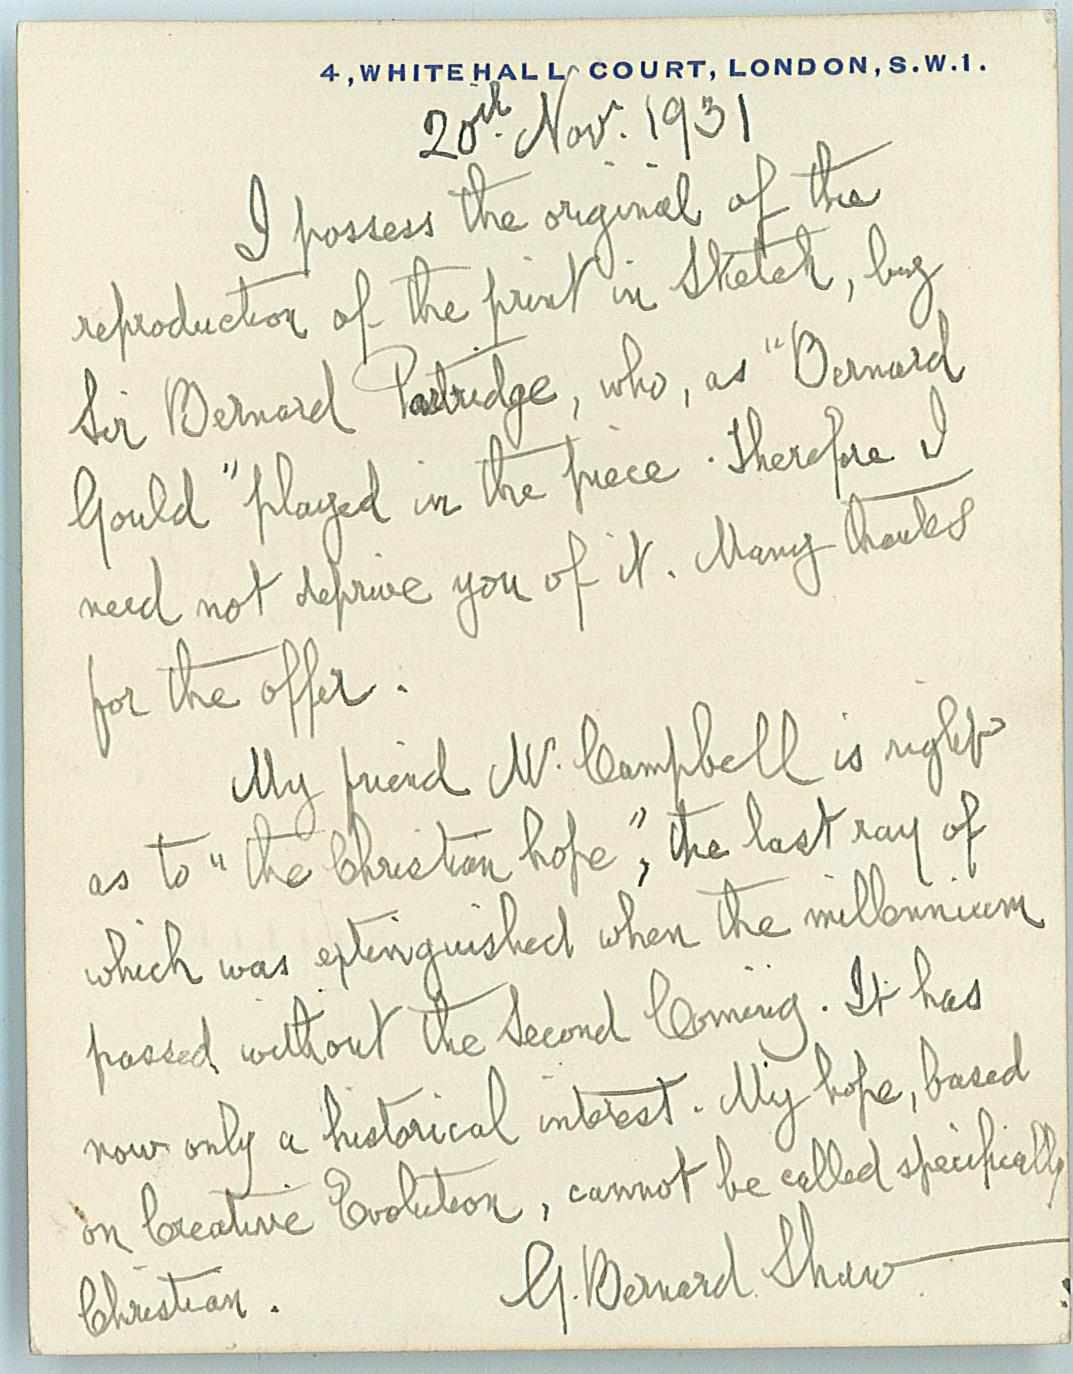 4, WHITEHALL COURT, LONDON, S.W.1.
20th. Nov. 1931
I possess the original of the
reproduction of the print in Sketch, by
Sir Bernard Partridge, who, as "Bernard
Gould" played in the piece. Therefore I
need not deprive you of it. Many thanks
for the offer.
My friend Mr. Campbell is right
as to "the Christian hope", the last ray of
which was extinguished when the millennium
passed without the Second Coming. It has
now only a historical interest. My hope, based
on Creative Evolution, cannot be called specifically
Christian.
G. Bernard Shaw